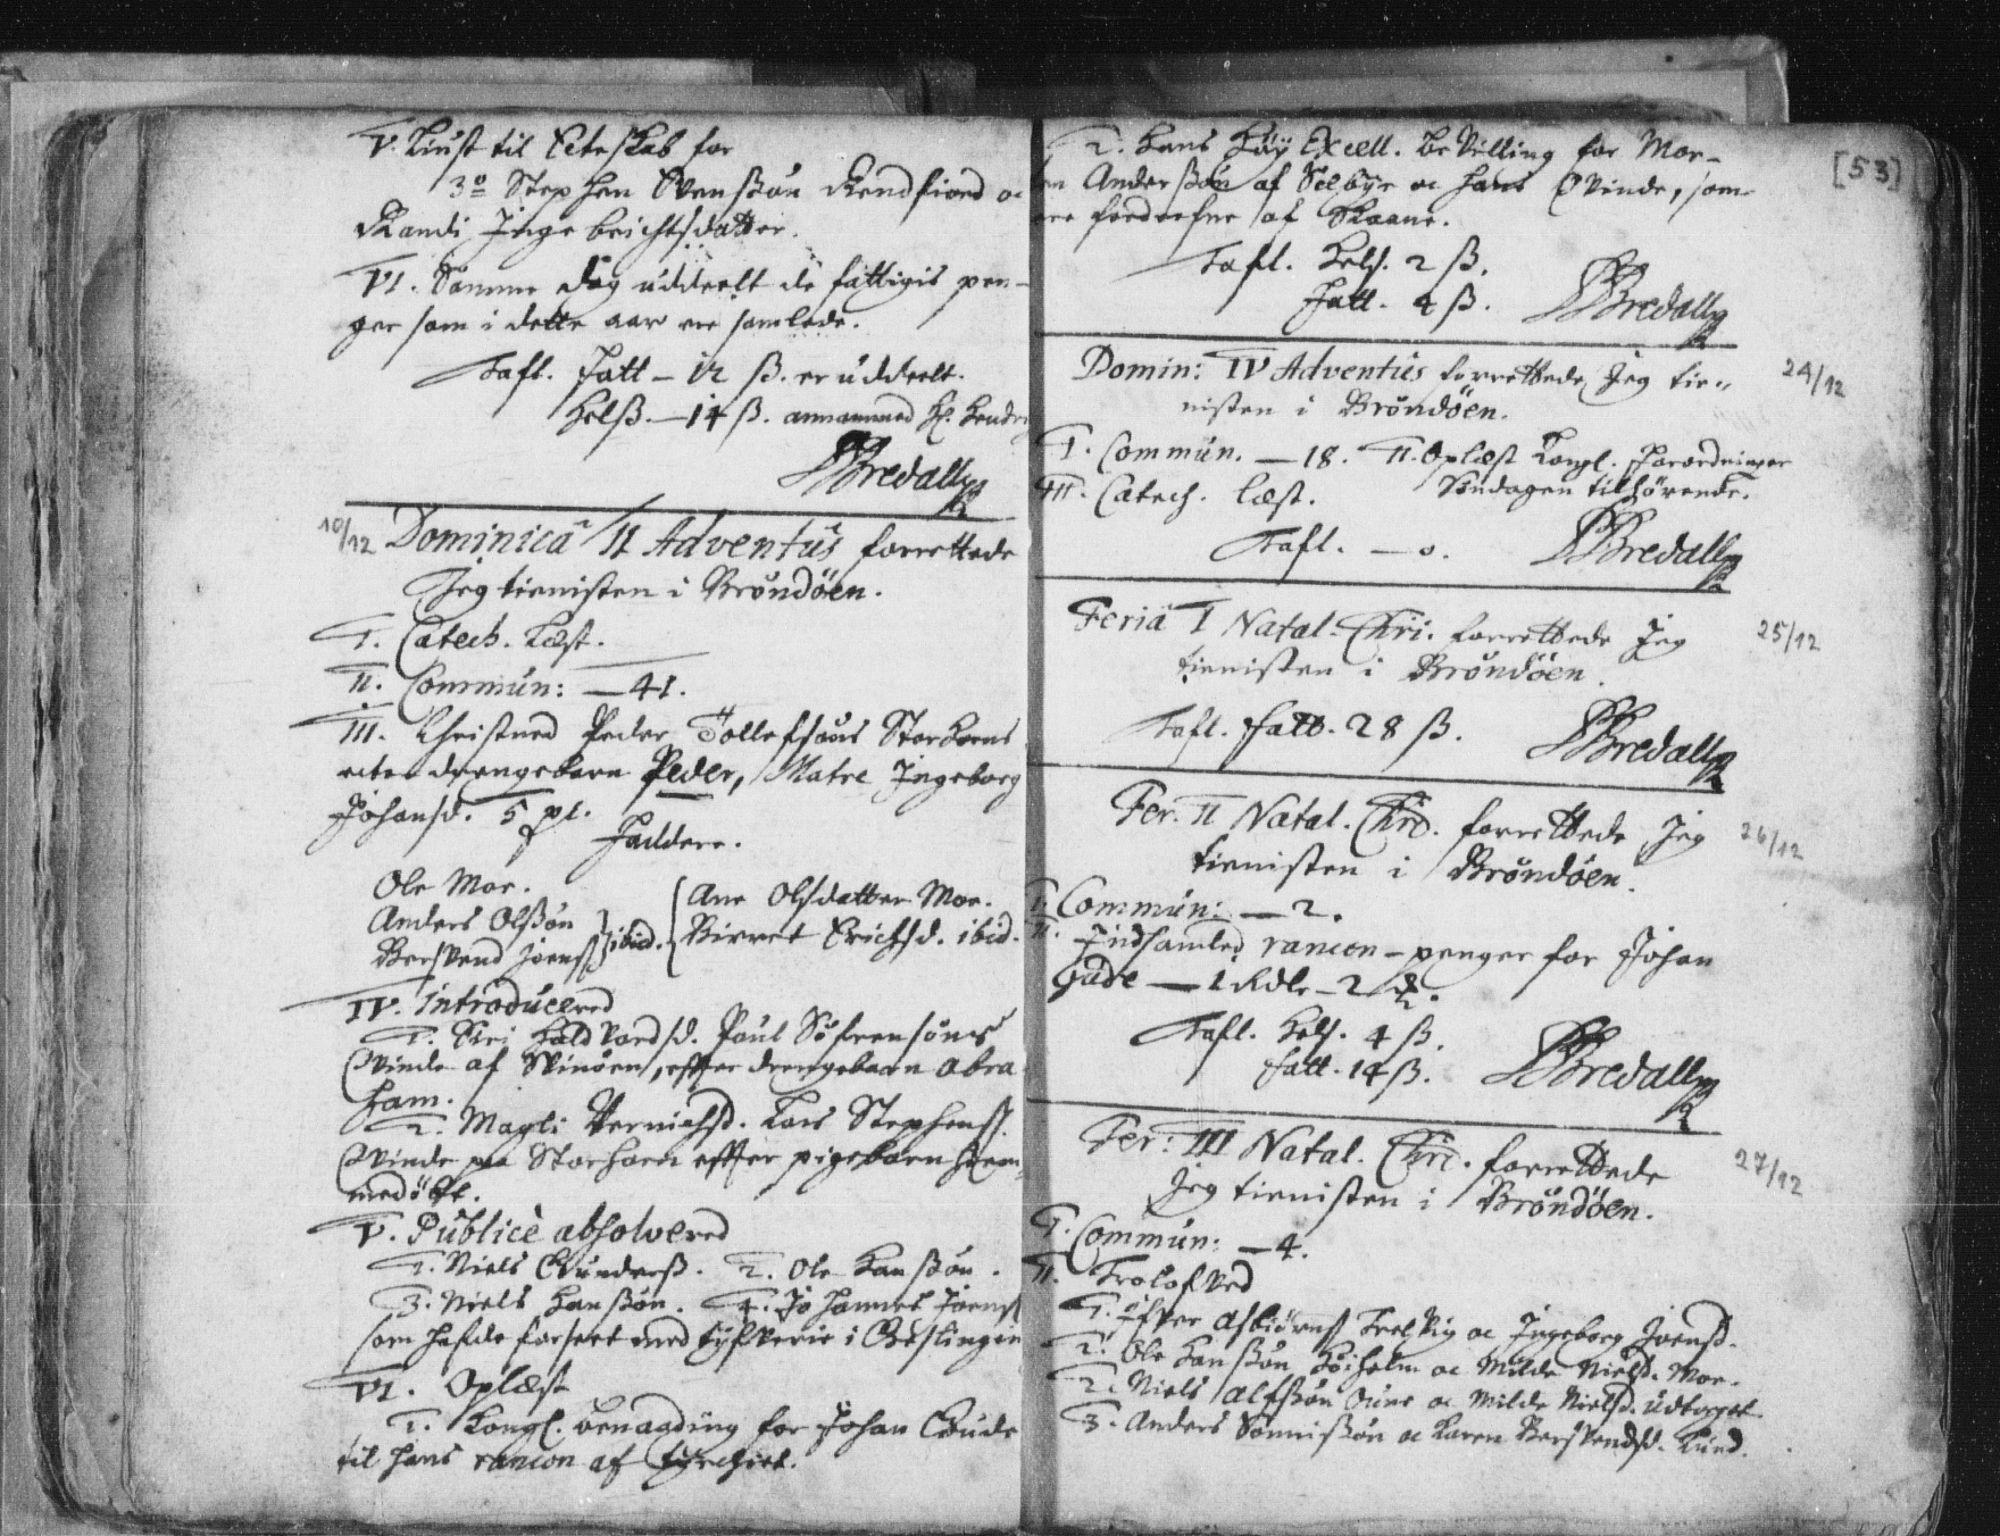 V. Liust til Ecteskab for
3º Stephen Svensßøn Rendfiord oc
Randi Ingebrichtsdatter.
VI. Samme dag uddeelt de fattigis pen-
ger som i dette aar ere samlede.
Tafl. Fatt — 12 ß. er uddeelt.
Helß. — 14 ß. annammed Hr. Hendr
Bredall
10/12 Dominica II Adventus forrettede
Jeg tienisten i Brøndøen.
I. Catech. Læst.
II. Commun: — 41.
III. Christned Peder Tollefsøns Storhorns
ecte drengebarn Peder, Matre Ingeborg
Johansd. 5 pl.
Faddere.
Ole Moe.
Anders Olßøn
Berswend Joensß } ibid.
Ane Olsdatter Moe.
Birret Erichsd. ibid.
IV. Introducered
1. Siri Haldvordsd. Paul Søfrensøns
Qvinde af Svinøen, effter drengebarn Abra
ham.
2. Magli Lars Stephens.
Qvinde paa Storhorn effter pigebarn hiem-
medøbt.
V. Publicè absolvered
1. Niels Gundersß. 2. Ole Hansßøn.
3. Niels Hansßøn. 4. Johannes Joensß
som hafde forseet med tyfverie i Geslingen
VI. Oplæst
1. Kongl. benaading for Johan Gude
til hans rancon af Tyrchiet.
2. Hans Høy Excell. bevilling for Mor-
ten Andersßøn af Selbye oc hans Qvinde, som
ere fordrefne af Skaane.
[53]
Tafl. Hels. 2 ß.
Fatt. 4 ß.
Bredall
Domin: IV Adventus forrettede Jeg tie-
nisten i Brøndøen.
24/12
I. Commun. — 18. II. Oplæst Kongl. Forordninger
III. Catech. læst. Søndagen tilhørende.
Tafl. — 0.
Bredall
Feria I Natal. Chri. forrettede Jeg
tienisten i Brøndøen.
25/12
Tafl. Fatt. 28 ß.
Bredall
Fer. II Natal. Chri. forrettede Jeg
tienisten i Brøndøen.
26/12
I. Commun: — 2.
II. Indsamled rancon-penger for Johan
Gude — 1 Rdlr – 2
Tafl. Hels. 4 ß.
Fatt. 14 ß.
Bredall
Fer: III Natal. Chri. forrettede
Jeg tienisten i Brøndøen.
27/12
I. Commun: — 4.
II. Trolofved
1. Ifver Asbiørnsß Trelvig oc Ingeborg Joensd.
2. Ole Hansßøn Høiholm oc Milde Nielsd. Moe.
2. Niels Alfsßøn oc Milde Nielsd. Udtorget
3. Anders Sonnisßøn oc Karen Berswendsd. Lund.